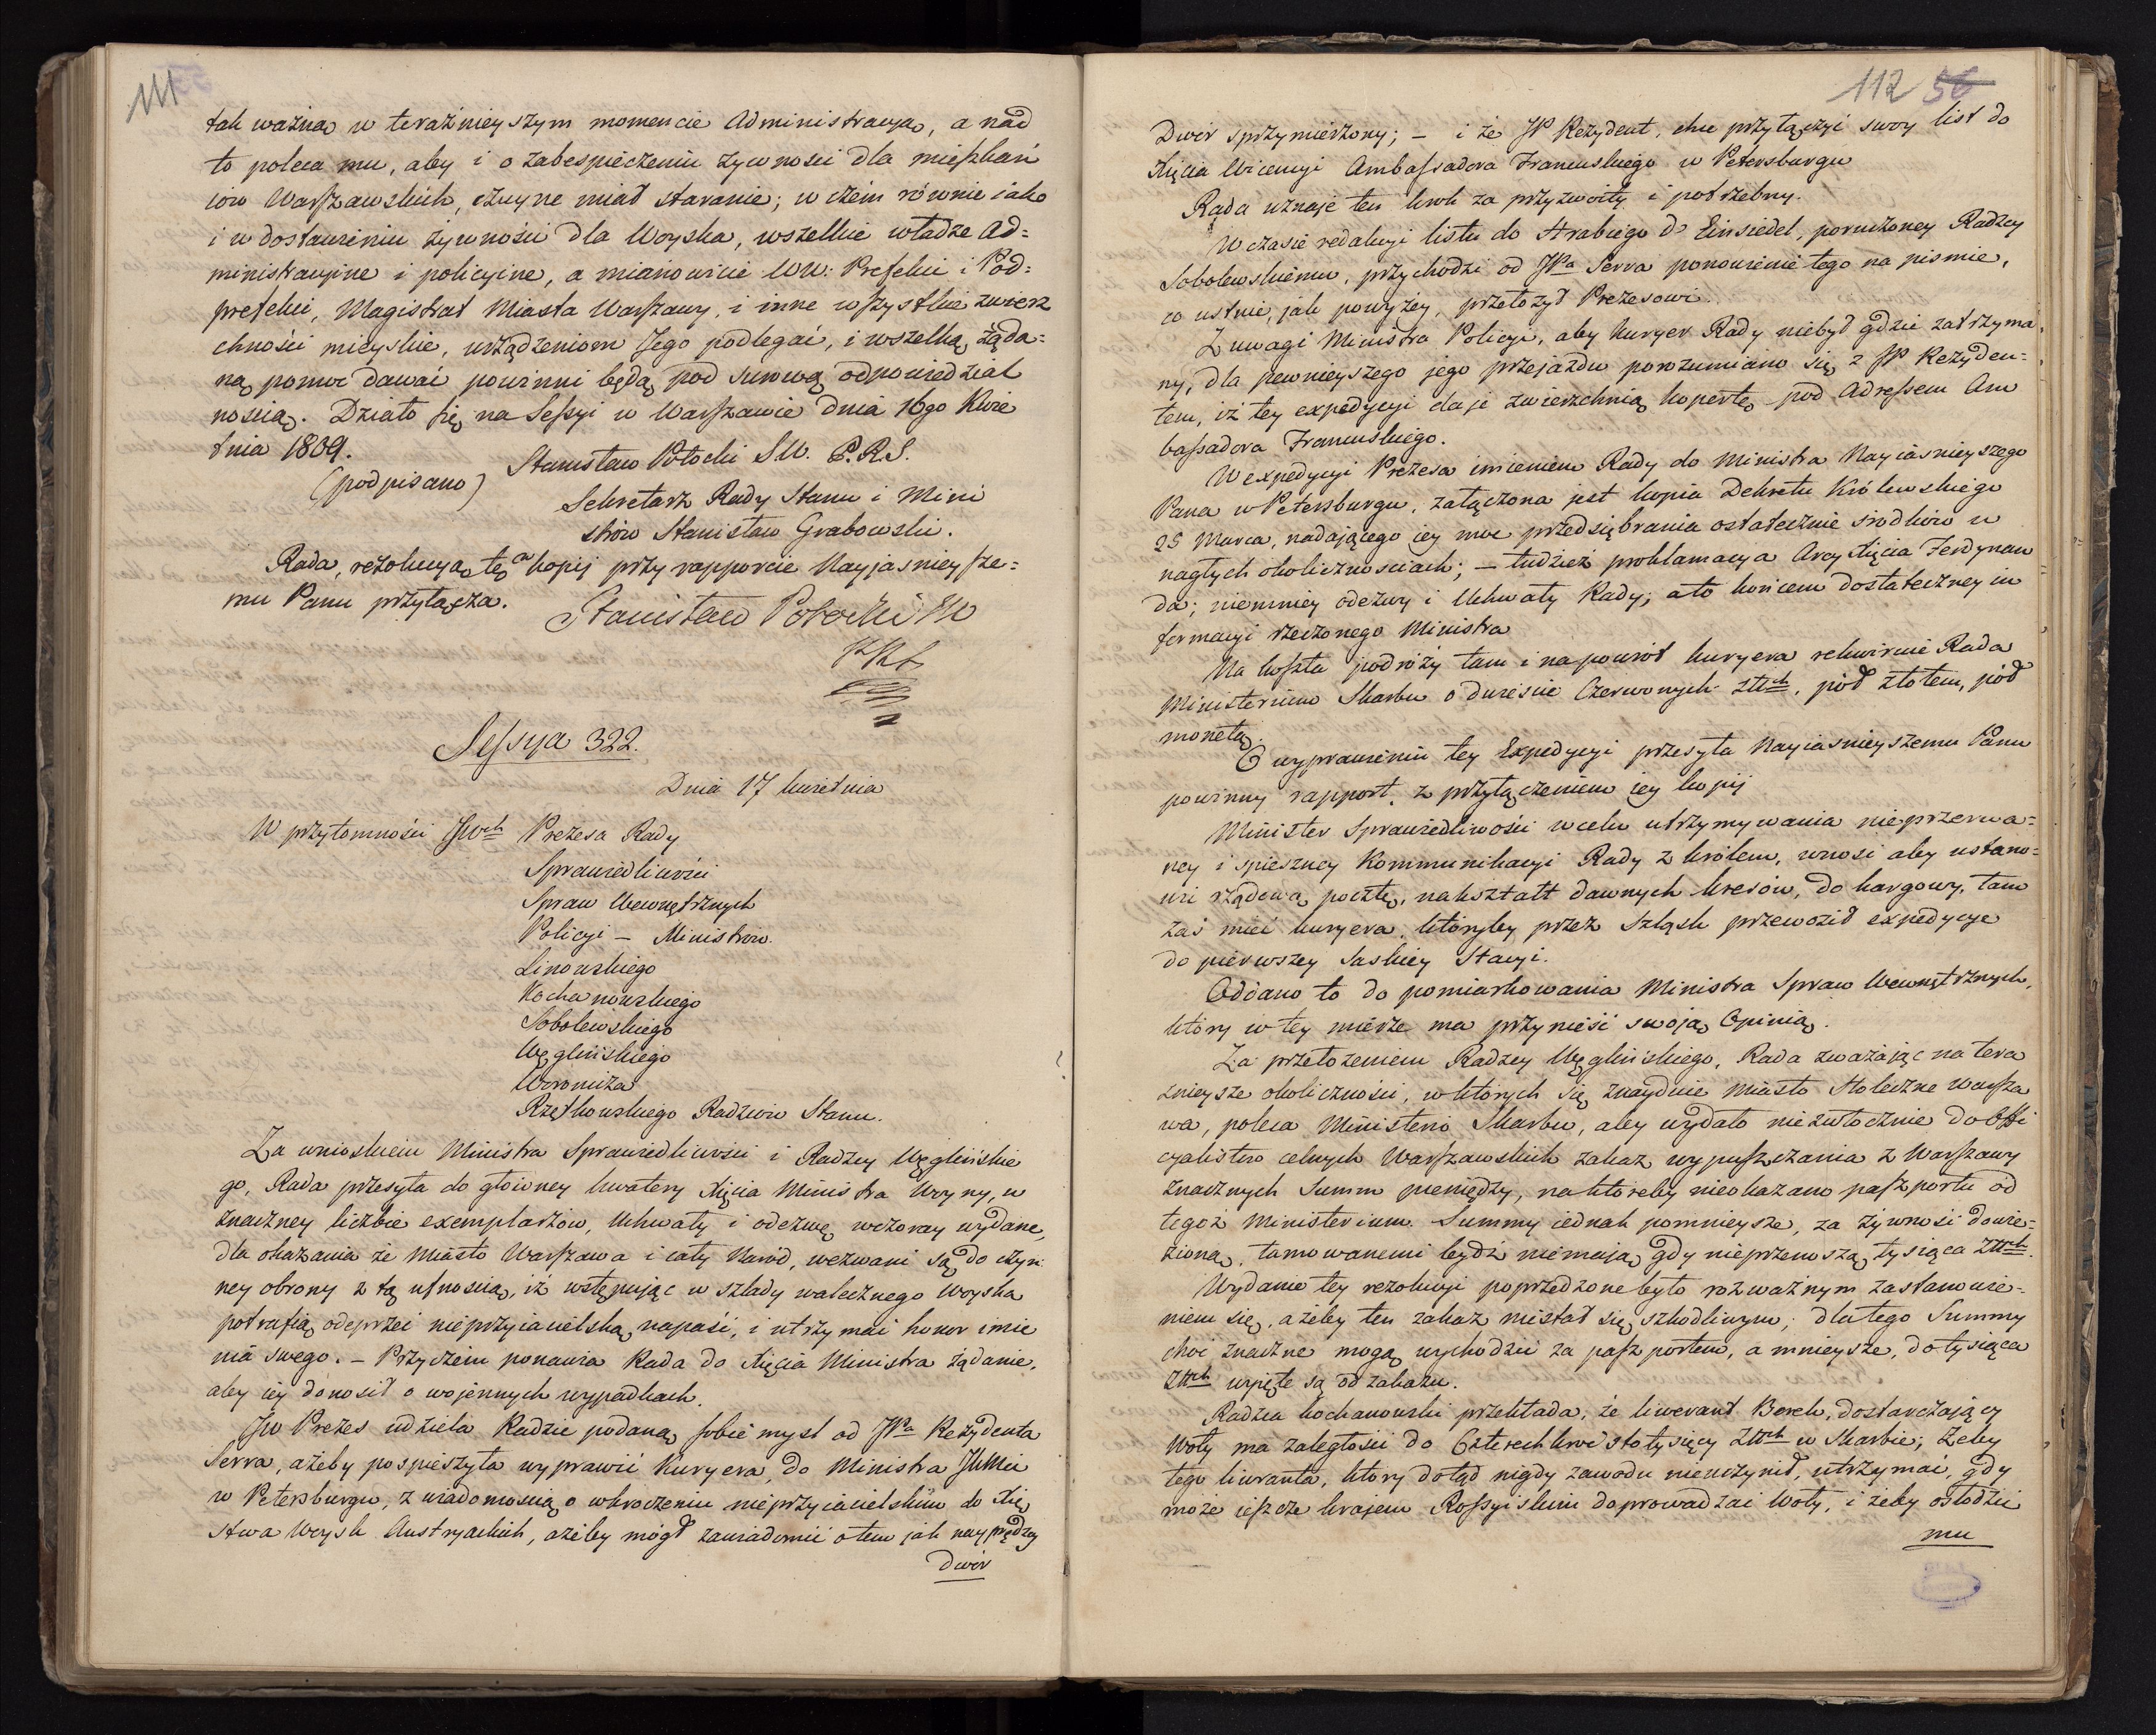 111
tak ważną w teraźnieyszym momencie Administracyą, a nad
to poleca mu, aby i o zabespieczeniu żywności dla mieszkań
ców Warszawskich, czuyne miał staranie; w czém równie iako
i w dostawieniu żywności dla Woyska, wszelkie władze Ad=
ministracyine i policyine, a mianowicie WW: Prefekci i Pod=
prefekci, Magistrat Miasta Warszawy, i inne wszystkie zwierz
chności mieyskie, urządzeniom Jego podlegać, i wszelką żąda=
ną pomoc dawać powinni będą pod surową odpowiedzial
nością. Działo się na Sessyi w Warszawie dnia 16go Kwie
tnia 1809.
(podpisano) Stanisław Potocki S.W. P.R.S.
Sekretarz Rady Stanu i Mini
strów Stanisław Grabowski.
Rada, rezolucyą tę w kopij przy rapporcie Nayjasnieysze=
mu Panu przyłącza.
Stanisław Potocki SW
Sessya 322.
Dnia 17 kwietnia
W przytomności JWch Prezesa Rady
Sprawiedliwości
Spraw Wewnętrznych
Policyi – Ministrów.
Linowskiego
Kochanowskiego
Sobolewskiego
Węglińskiego
Woronicza
Rzętkowskiego Radzców Stanu.
Za wnioskiem Ministra Sprawiedliwości i Radzcy Węglińskie
go, Rada przesyła do głowney kwatery Xięcia Ministra Woyny, w
znaczney liczbie exemplarzów, Uchwały i odezwę wczoray wydane,
dla okazania że miasto Warszawa i cały Naród, wezwani są do czyn
ney obrony z tą ufnością, iż wstępując w szlady walecznego Woyska
potrafią odeprzeć nieprzyiacielską napaść, i utrzymać honor imie
nia swego. – Przyczém ponawia Rada do Xięcia Ministra żądanie,
aby iéy donosił o wojennych wypadkach.
JW Prezes udziela Radzie podaną sobie myśl od JPa Rezydenta
Serra, ażeby pospieszyła wyprawić Kuryera, do Ministra JKMci
w Petersburgu, z wiadomością o wkroczeniu nieprzyiacielskim do Xię
stwa Woysk Austryackich, ażeby mógł zawiadomić o tem jak nayprędzey
dwór
112 56
Dwór sprzymierzony; – i że JP Rezydent, chce przyłączyć swoy list do
Xięcia Wicencyi Ambassadora Francuskiego w Petersburgu
Rada uznaje ten krok za przyzwoity i potrzebny.
W czasie redakcyi listu do Hrabiego d'Einsiedel, poruczoney Radzcy
Sobolewskiému, przychodzi od JPa Serra ponowienie tego na piśmie,
co ustnie, jak powyżey, przełożył Prezesowi.
Z uwagi Ministra Policyi, aby kuryer Rady niebył gdzie zatrzyma
ny, dla pewnieyszego jego przejazdu porozumiano się z JP Rezyden=
tem, iż tey expedycyi daje zwierzchnią kopertę pod Adressem Am
bassadora Francuskiego.
W expedycyi Prezesa imieniem Rady do Ministra Nayiaśnieyszego
Pana w Petersburgu, załączona jest kopia Dekretu Królewskiego
25 Marca, nadającego iey moc przedsiębrania ostatecznie środków w
nagłych okolicznościach; – tudzież proklamacya Arcy Xięcia Ferdynan
da; niemniey odezwy i Uchwały Rady; a to końcem dostateczney in
formacyi rzeczonego Ministra
Na koszta podróży tam i napowrót kuryera rekwiruie Rada
Ministerium Skarbu o dwieście Czerwonych złłch, pół złotem, pół
monetą.
O wyprawieniu tey Expedycyi przesyła Nayiaśnieyszemu Panu
powinny rapport, z przyłączeniem iey kopij
Minister Sprawiedliwości w celu utrzymywania nieprzerwa=
ney i spieszney Kommunikacyi Rady z królem, wnosi aby ustano=
wić rządową pocztę, nakształt dawnych kresów, do kargowy, tam
zaś mieć kuryera, któryby przez Szląsk przewoził expedycye
do pierwszey Saskiéy Stacyi.
Oddano to do pomiarkowania Ministra Spraw Wewnętrznych,
który w tey mierze ma przynieść swoją Opinią.
Za przełożeniem Radzcy Węglińskiego, Rada zważając na tera
źnieysze okoliczności, w których się znayduie miasto Stołeczne Warsza
wa, poleca Ministerio Skarbu, aby wydało niezwłocznie do Offi
cyalistów celnych Warszawskich zakaz wypuszczania z Warszawy
znacznych Summ pieniędzy, na któreby nieokazano paszportu od
tegoż Ministerium. Summy iednak pomnieysze, za żywność dowie=
zioną, tamowanemi bydź niemaią, gdy nieprzenoszą tysiąca złłch.
Wydanie tey rezolucyi poprzedzone było rozważnym zastanowie=
niem się, ażeby ten zakaz niestał się szkodliwym; dlatego Summy
choć znaczne mogą wychodzić za paszportem, a mnieysze, do tysiąca
złłch wyięte są od zakazu.
Radzca Kochanowski przekłada, że liwerant Berek, dostarczający
Woły ma zaległości do Czterechkroćstotysięcy złłch w Skarbie; żeby
tego liweranta, który dotąd nigdy zawodu nieuczynił, utrzymać, gdy
może ieszcze krajem Rossyiskim doprowadzać Woły, i żeby osłodzić
mu